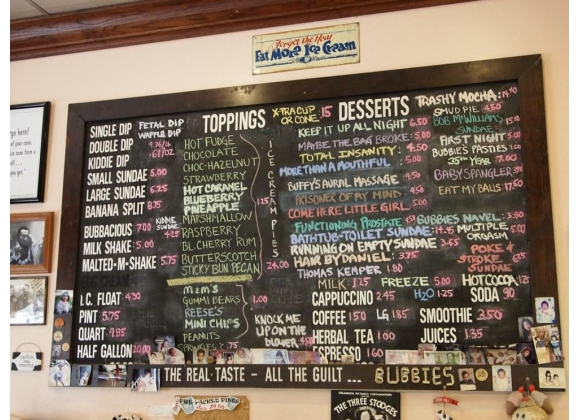 Forget the Heat
Eat More Ice Cream
SINGLE DIP
DOUBLE DIP
KIDDIE DIP
SMALL SUNDAE 5.00
LARGE SUNDAE 6.25
BANANA SPLIT 8.75
BUBBACIOUS 7.00 KIDDIE SUNDAE 4.25
MILK SHAKE 5.00
MALTED-M-SHAKE 5.75
I.C. FLOAT 4.30
PINT 5.75
QUART 9.95
HALF GALLON 20.00
PETAL DIP
WAFFLE DIP
TOPPINGS
HOT FUDGE
CHOCOLATE
CHOC-HAZELNUT
STRAWBERRY
HOT CARAMEL
BLUEBERRY
PINEAPPLE
MARSHMALLOW
RASPBERRY
BL.CHERRY RUM
BUTTERSCOTCH
STICKY BUN PECAN
1.25
M&M'S
GUMMI BEARS
REESE'S
MINI CHIPS
PEANUTS
1.00
ICE CREAM PIES
24.00
KNOCK ME
UP ON THE
BLOWER
X-TRA CUP
OR CONE .15
DESSERTS
KEEP IT UP ALL NIGHT 6.50
MAYBE THE BAG BROKE 5.80
TOTAL INSANITY 4.50
MORE THAN A MOUTHFUL 5.00
BUFFY'S AURAL MASSAGE 4.50
PRISONER OF MY MIND 4.50
COME HERE LITTLE GIRL 5.00
FUNCTIONING PROSTATE
BATHTUB-TOILET SUNDAE 14.75
RUNNING ON EMPTY SUNDAE 3.65
HAIR BY DANIEL 3.75
THOMAS KEMPER 1.80
MILK 1.25 FREEZE 5.00 HOT COCOA
CAPPUCCINO 2.45 H2O 1.25 SODA
COFFEE 1.50 LG 1.85 SMOOTHIE 3.50
HERBAL TEA 1.00 JUICES 1.35
ESPRESSO 1.60
TRASHY MOCHA
SMUD PIE 4.50
BOB MCWILLIAMS
SUNDAE
FIRST NIGHT 5.00
BUBBIES PASTIES 1.00
25TH YEAR 7.00
BABY SPANGLER
EAT MY BALLS 17.50
BUBBIES NAVEL 3.80
MULTIPLE
ORGASM 5.00
POKE &
STROKE
SUNDAE 6.25
THE REAL TASTE - ALL THE GUILT ... BUBBIES
THE THREE STOOGES